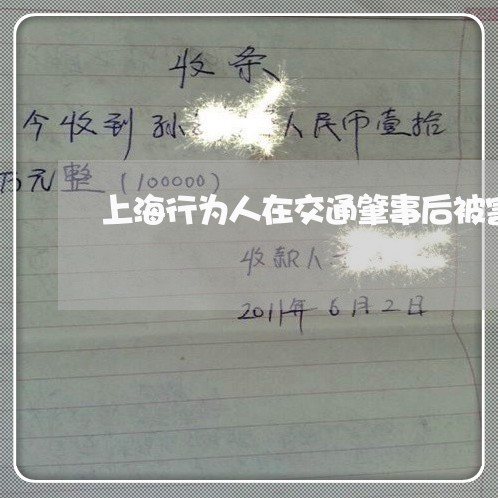 收条
今收到孙 人民币壹拾
万元整（100000）
上海行为人在交通肇事后被害
收款人
2011年6月2日